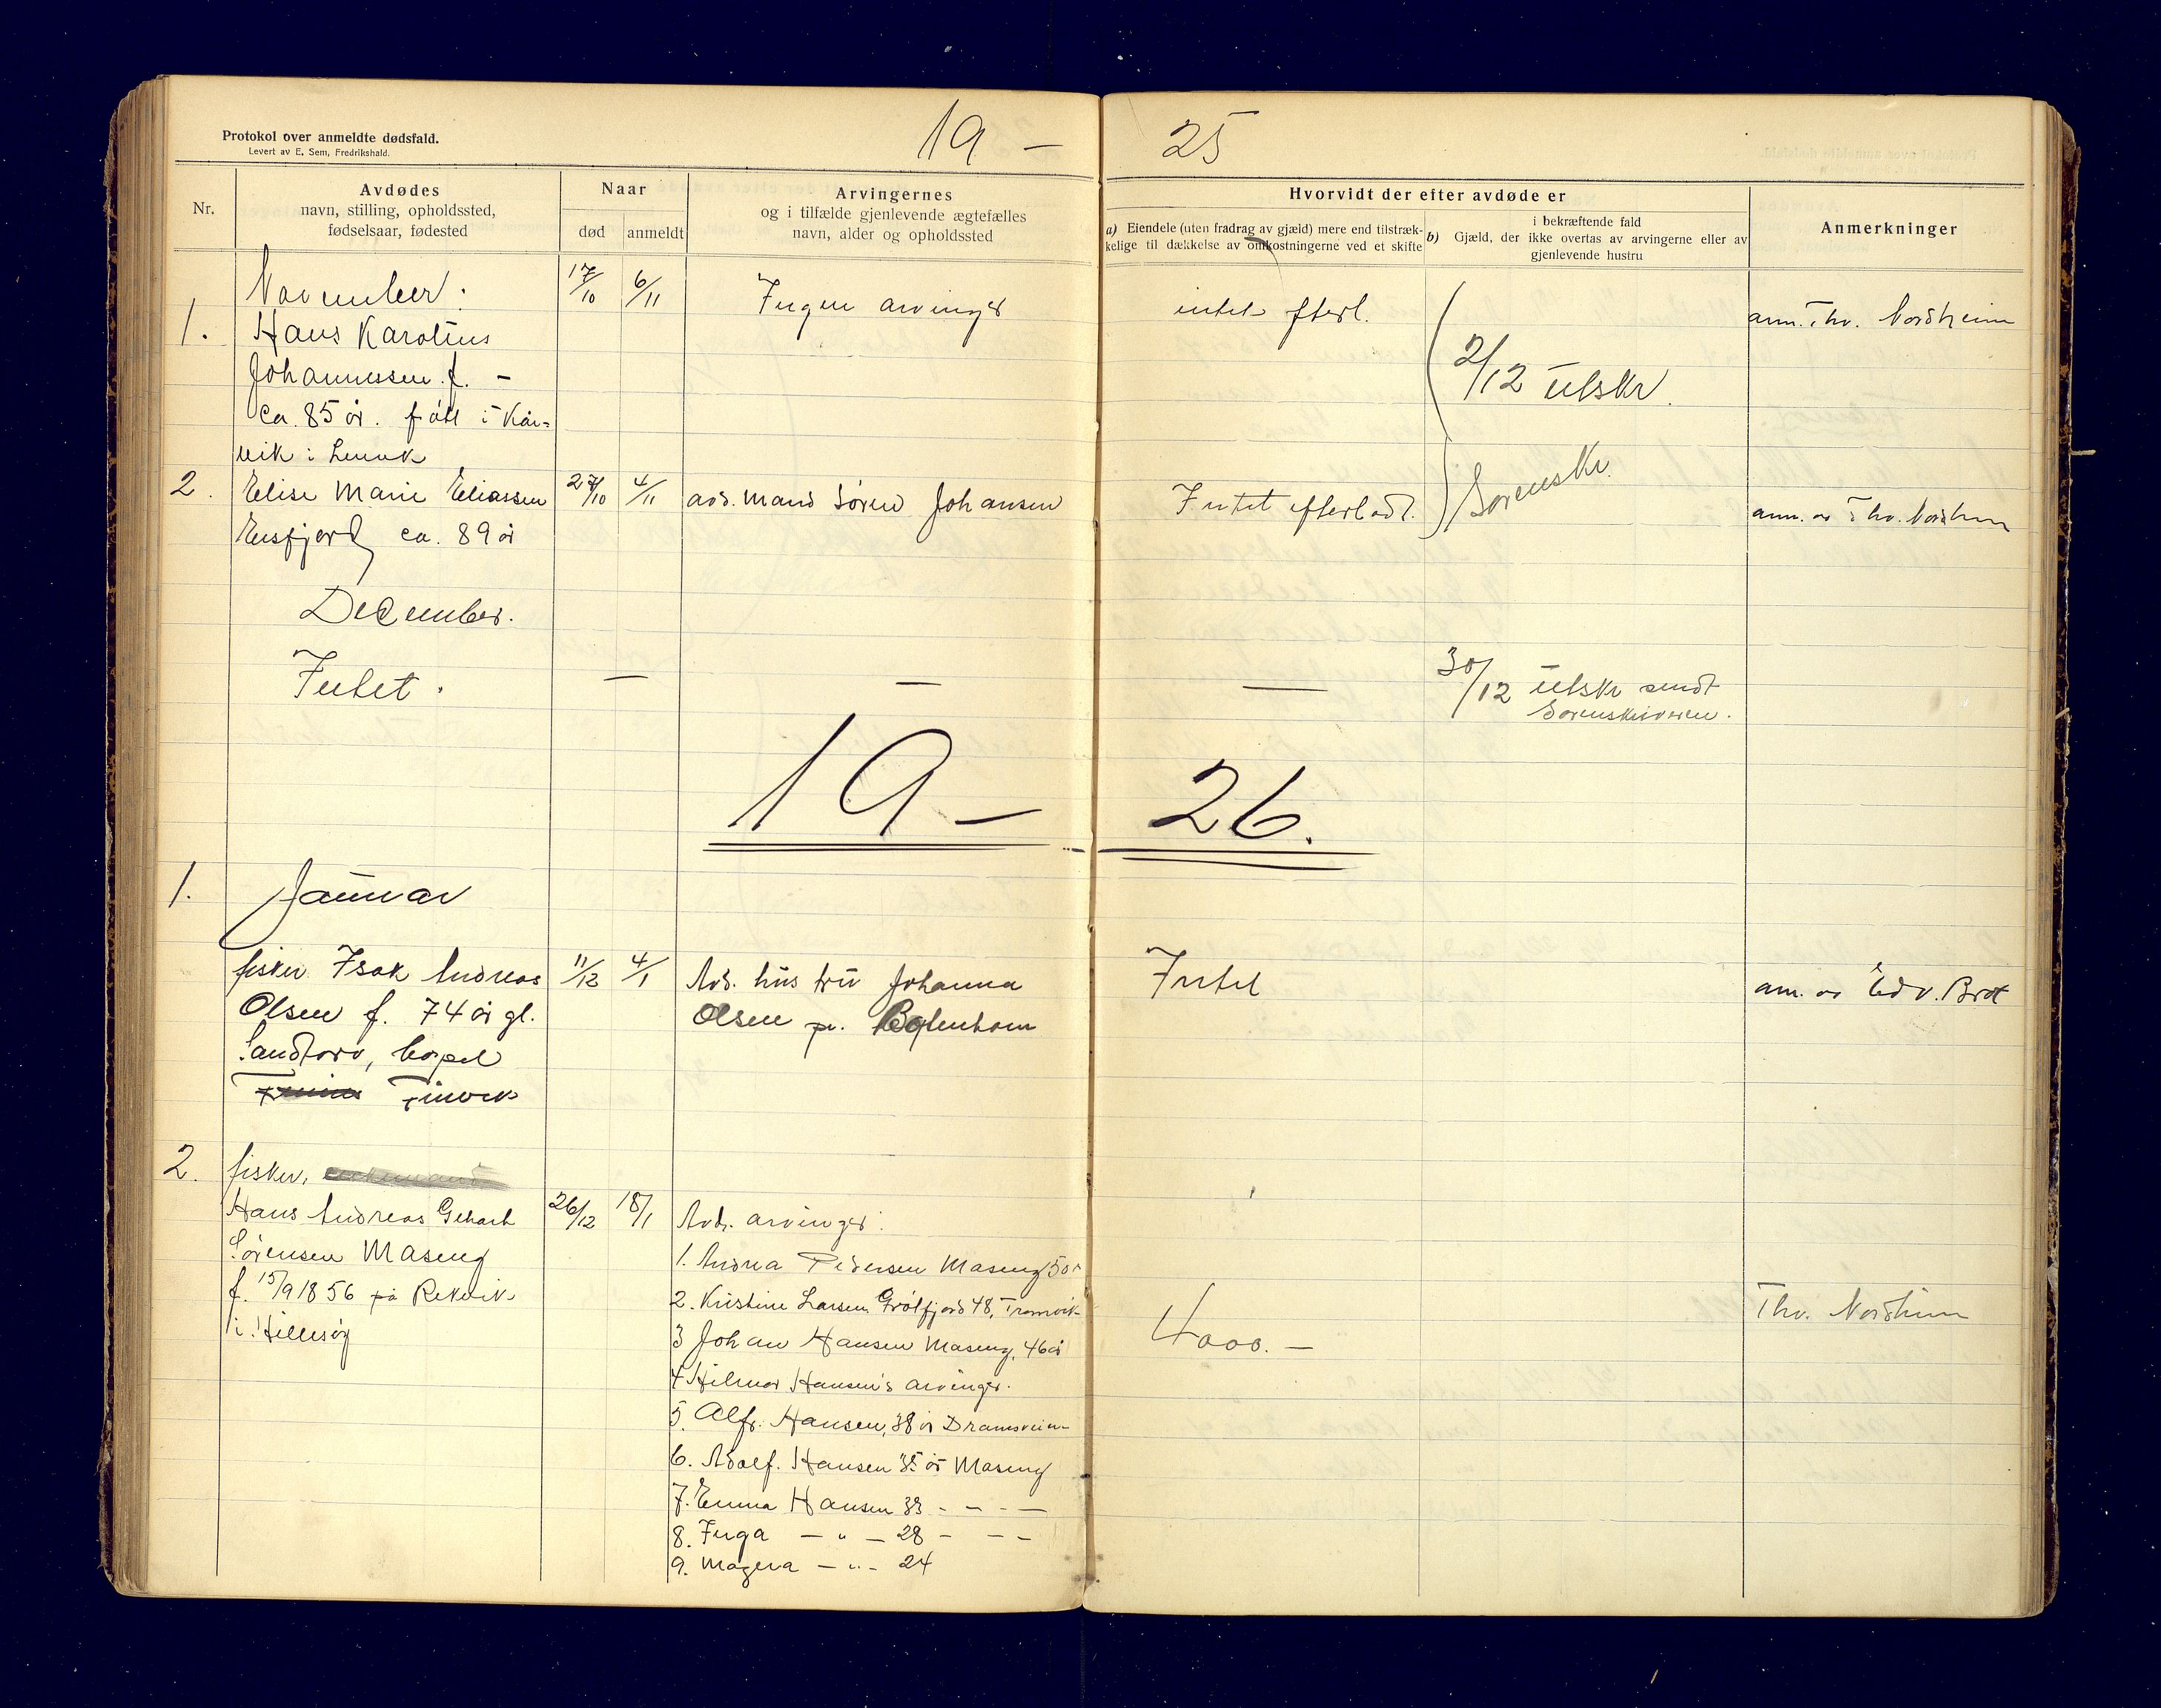 Protokol over anmeldte dødsfald.
Levert av E. Sem, Fredrikshald.
19 — 25
Nr.
Avdødes
navn, stilling, opholdssted,
fødselsaar, fødested
Naar
død
anmeldt
Arvingernes
og i tilfælde gjenlevende ægtefælles
navn, alder og opholdssted
Hvorvidt der efter avdøde er
a) Eiendele (uten fradrag av gjæld) mere end tilstræk-
kelige til dækkelse av omkostningerne ved et skifte
i bekræftende fald
b) Gjæld, der ikke overtas av arvingerne eller av
gjenlevende hustru
Anmerkninger
November.
17/10 6/11 Ingen arvinger intet efterl. anm. Thv. Nordheim
1. Hans Karolius
Johannessen f. –
ca. 85 år. født i Kår=
vik i Lenvik
2/12 utskr.
Sorenskr.
2. Elise Marie Eliassen 27/10 4/11 avd. mand Søren Johansen Intet efterladt. anm. av Thv. Nordheim
Ersfjord ca. 89 år
December.
Intet. — — — 30/12 utskr sendt
Sorenskriveren.
19 — 26.
1. Januar
fisker Isak Andreas 11/12 4/1 Avd. hustru Johanna Intet anm. av Edv. Brox
Olsen f. 74 år gl.
Olsen pr.
Sandtorv, bopel
2. fisker,
Hans Andreas Gerhart 26/12 18/1 Avd. arvinger:
Sørensen Maseng
f. 15/9 1856 på Rekvik
i Hillesøy
1. Andrea Pedersen Maseng 50 år
2. Kristine Larsen Grøtfjord 48, Tromvik
3 Johan Hansen Maseng, 46 år
4 Hilmar Hansen's arvinger.
5. Alfr. Hansen, 38 år
6. Adolf. Hansen 35 år Maseng
7. Emma Hansen 33 - - - —
8. Inga — " — 28 - - -
9. Magna — " - 24
4000. —
Thv. Nordheim